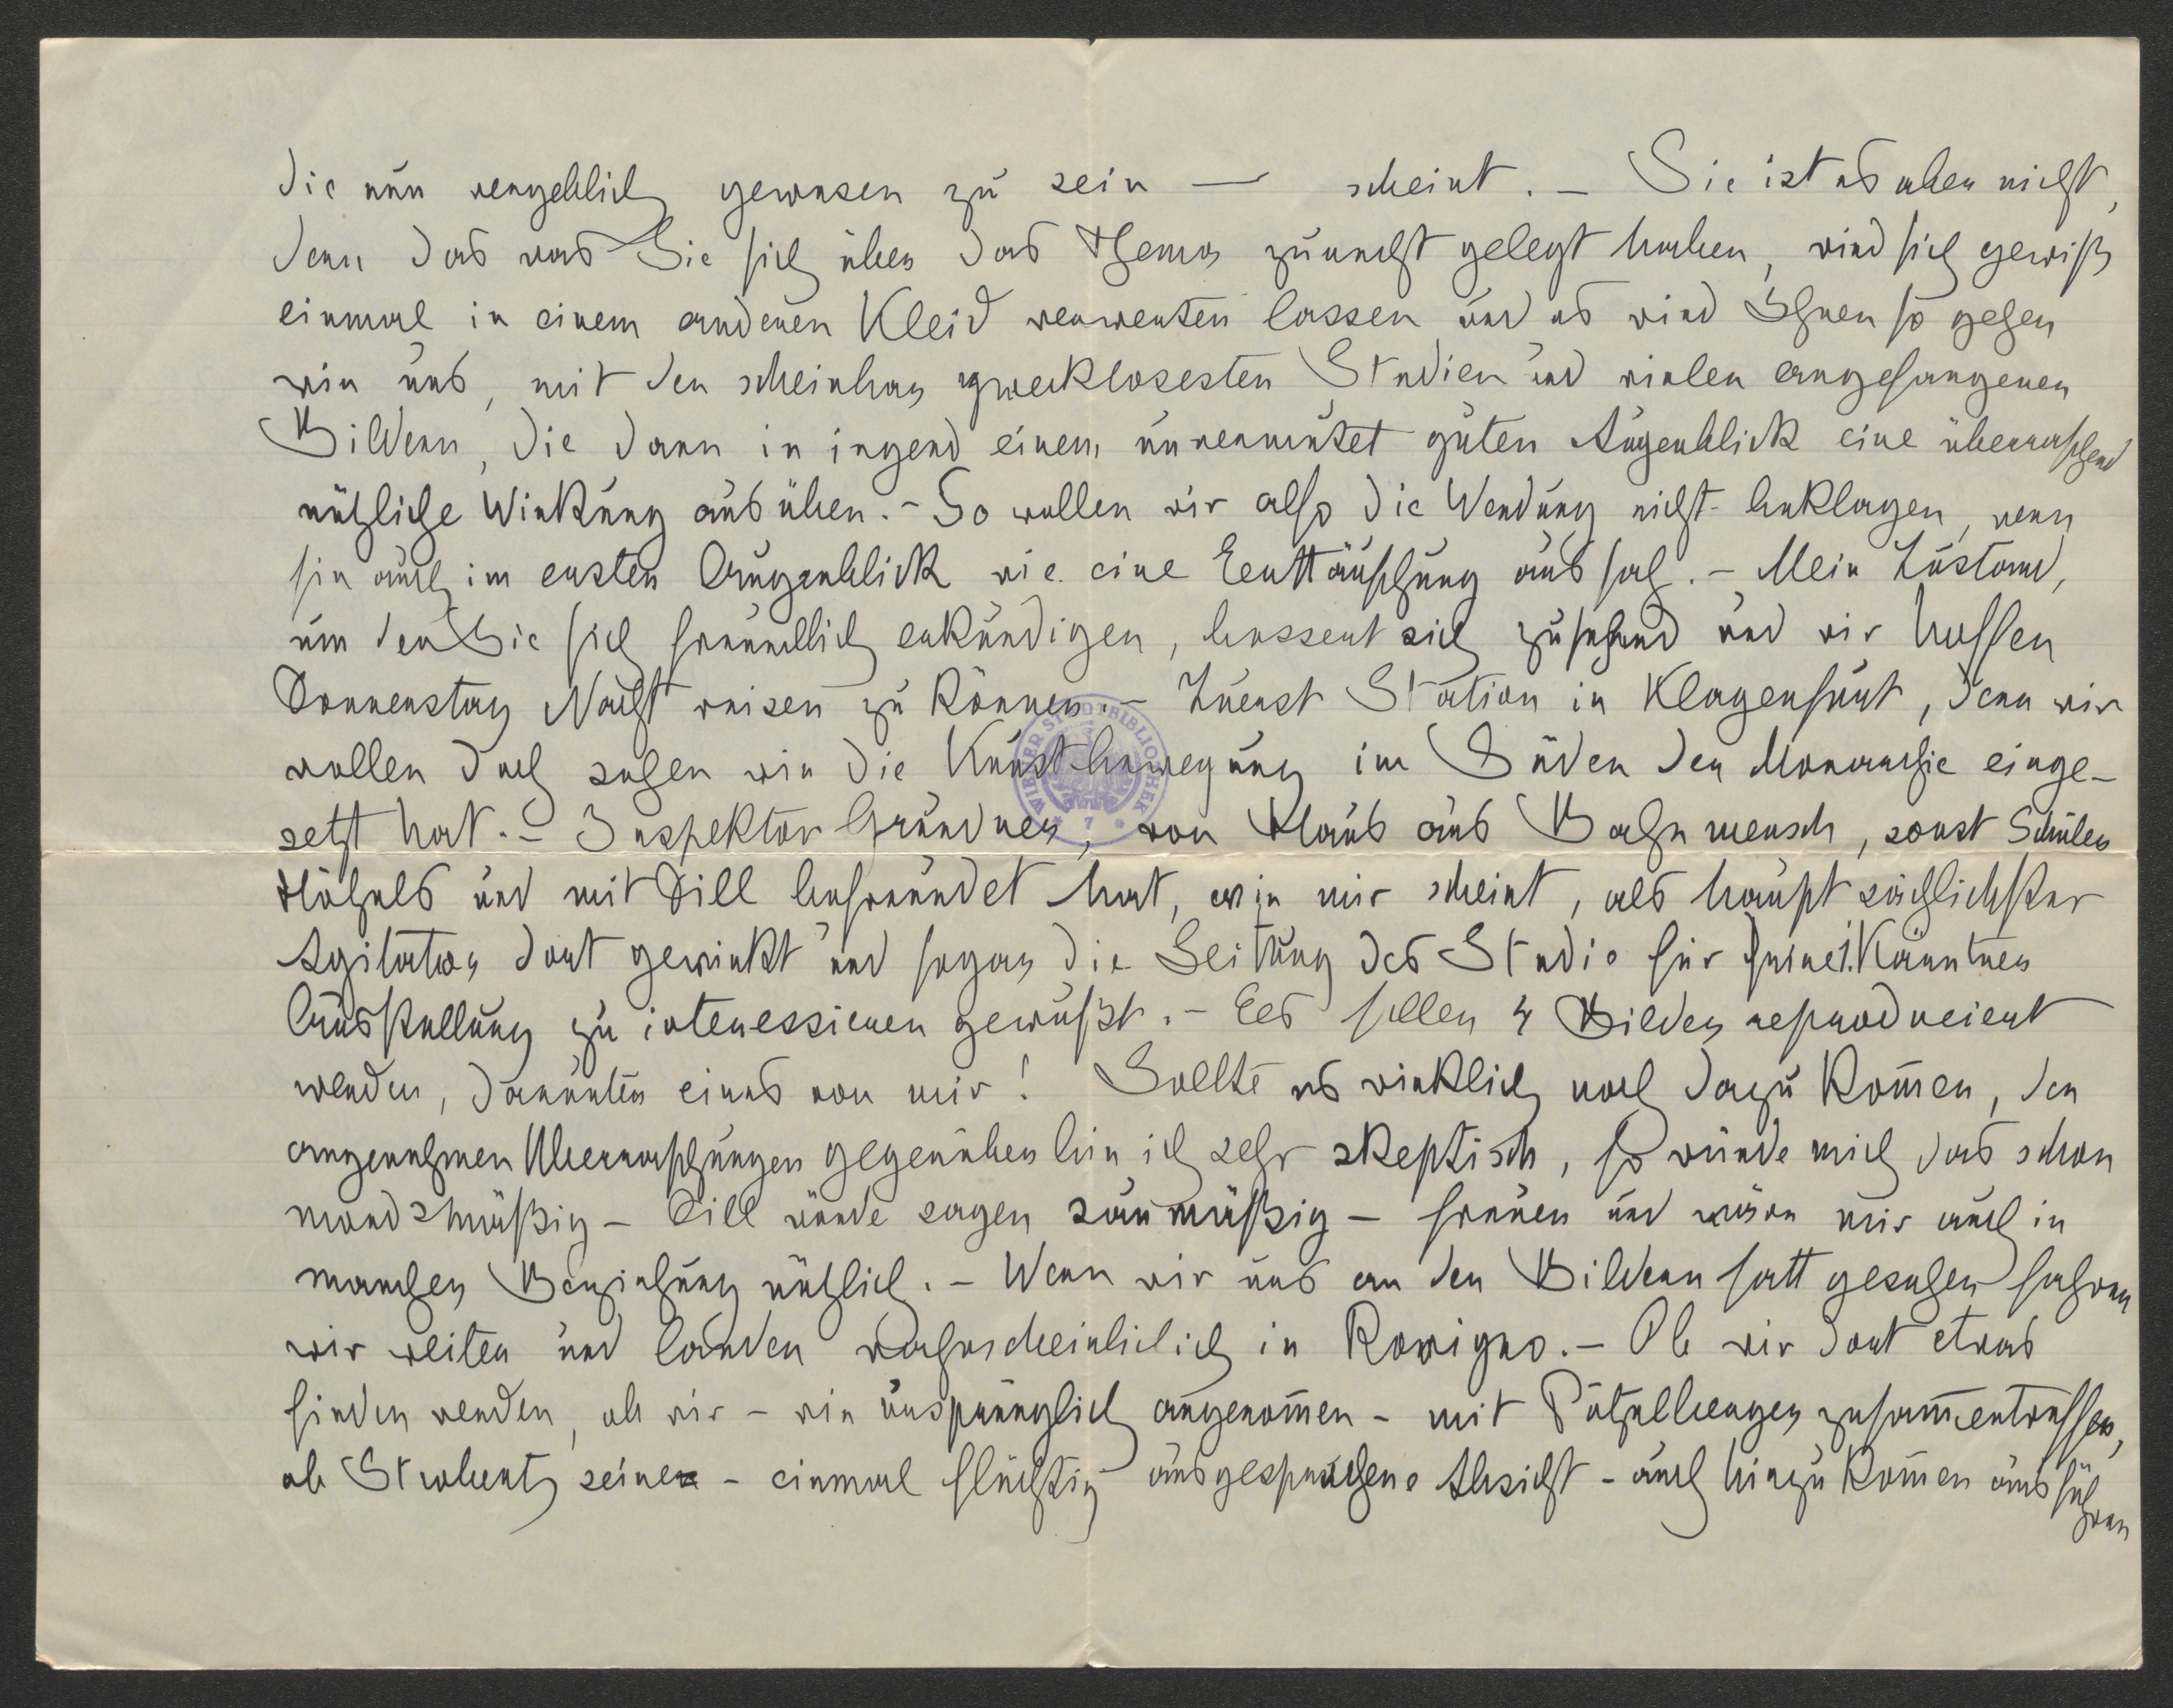 die nun vergeblich gewesen zu sein — scheint. – Sie ist es aber nicht,
denn das was Sie sich über das Thema zurecht gelegt haben, wird sich gewiß
einmal in einem anderen Kleid verwerten lassen und es wird Ihnen so gehen
wie uns, mit den scheinbar zwecklosesten Studien und vielen angefangenen
Bildern, die dann in irgend einem unvermutet guten Augenblick eine überraschend
nützliche Wirkung ausüben. – So wollen wir also die Wendung nicht beklagen, wenn
sie auch im ersten Augenblick wie eine Eenttäuschung aussah. – Mein Zustand,
um den Sie sich freundlich erkündigen, bessert sich zusehend und wir hoffen
Donnerstag Nacht reisen zu können. – Zuerst Station in Klagenfurt, denn wir
wollen doch sehen wie die Kunstbewegung im Süden der Monarchie einge-
setzt hat. – Inspektor Gründner, von Haus aus Bahnmensch, sonst Schüler
Hözels und mit Dill befreundet hat, wie mir scheint, als hauptsächlichster
Agitator dort gewirkt und sogar die Leitung des Studio für seine 1. Kärntner
Ausstellung zu interessieren gewußt. – Ees sollen 4 Bilder reproduciert
werden, darunter eines von mir! Sollte es wirklich noch dazu kom̅en, den
angenehmen Überraschungen gegenüber bin ich sehr skeptisch, so würde mich das schon
mordsmäßig – Dill würde sagen saumäßig – freuen und wäre mir auch in
mancher Beziehung nützlich. – Wenn wir uns an den Bildern satt gesehen fahren
wir weiter und landen wahrscheinlichlich in Rovigno. – Ob wir dort etwas
finden werden, ob wir – wie ursprünglich angenom̅en – mit Pötzelberger zusam̅entreffen,
ob Strobentz seine – einmal flüchtig ausgesprochene Absicht – auch hinzukom̅en ausführen
WIENER STADTBIBLIOTHEK
7